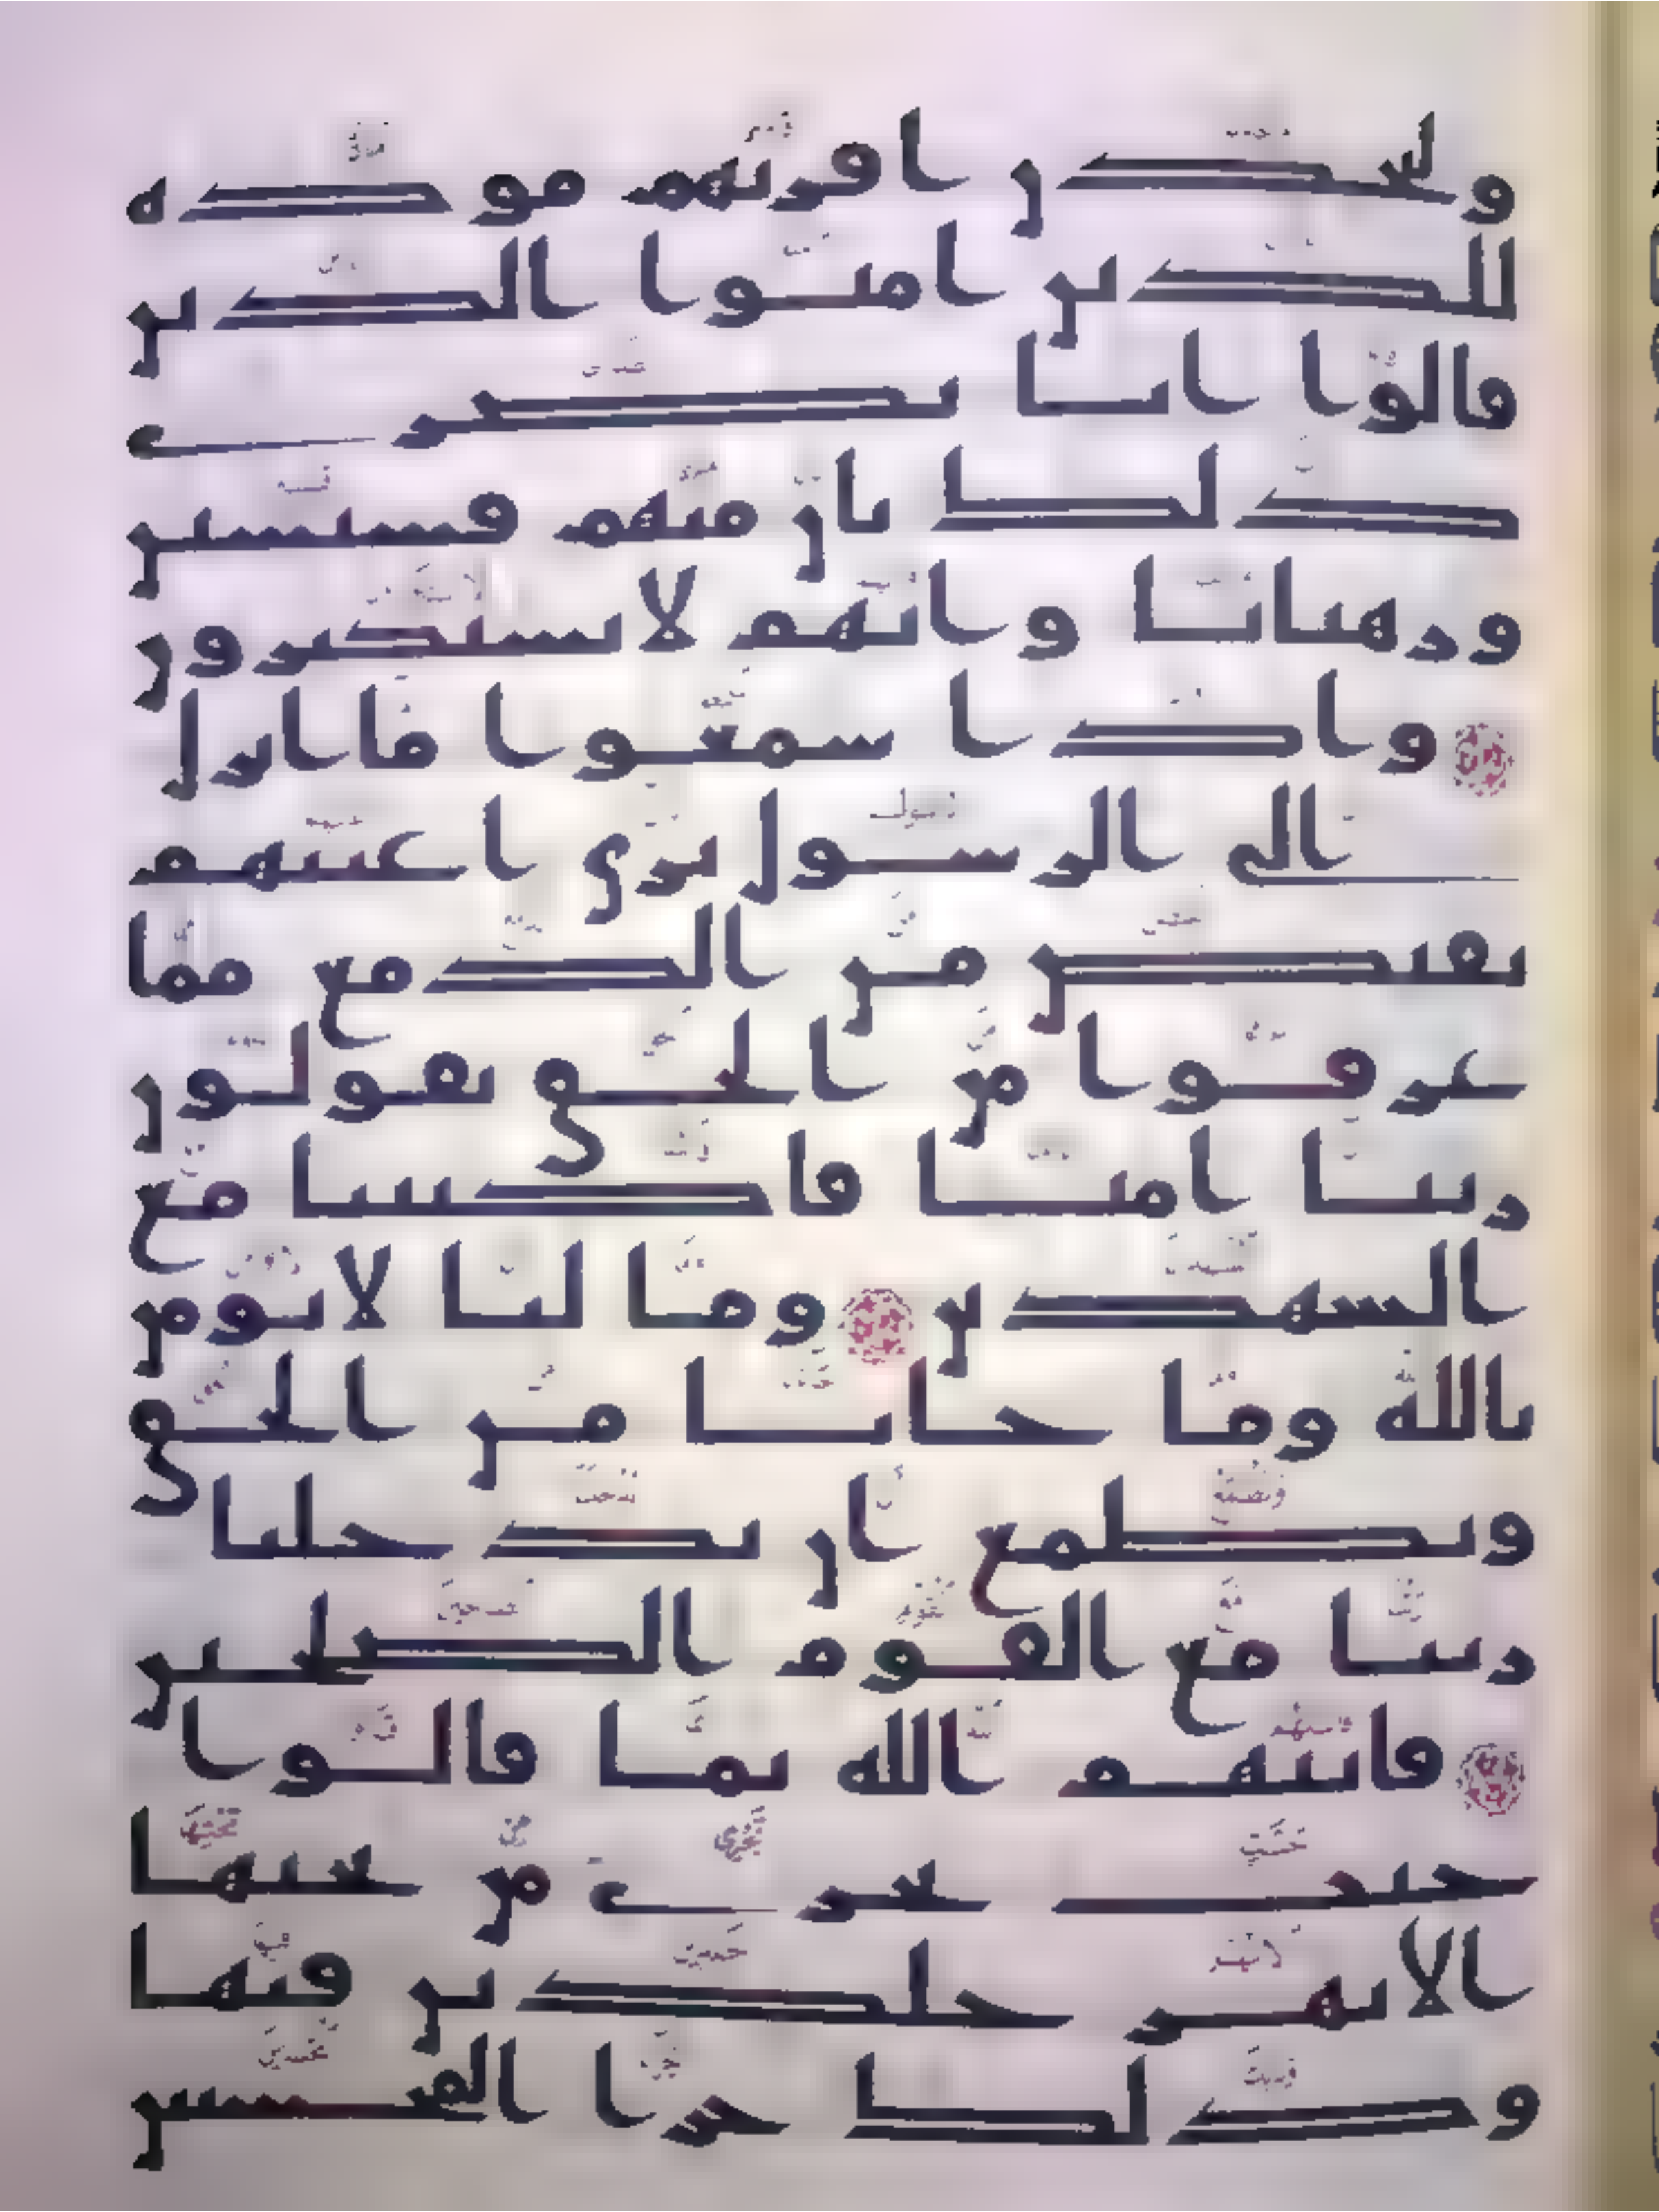 ولتجدن اقربهم موده
للذين امنوا الذين
قالوا انا نصرى
ذلك بان منهم قسيسين
ورهبانا وانهم لا يستكبرون
واذا سمعوا ما انزل
الى الرسول ترى اعينهم
تفيض من الدمع مما
عرفوا من الحق يقولون
ربنا امنا فاكتبنا مع
الشهدين وما لنا لا نومن
بالله وما جانا من الحق
ونطمع ان يدخلنا
ربنا مع القوم الصلحين
فاثبهم الله بما قالوا
جنت تجرى من تحتها
الانهر خلدين فيها
وذلك جزا المحسنين